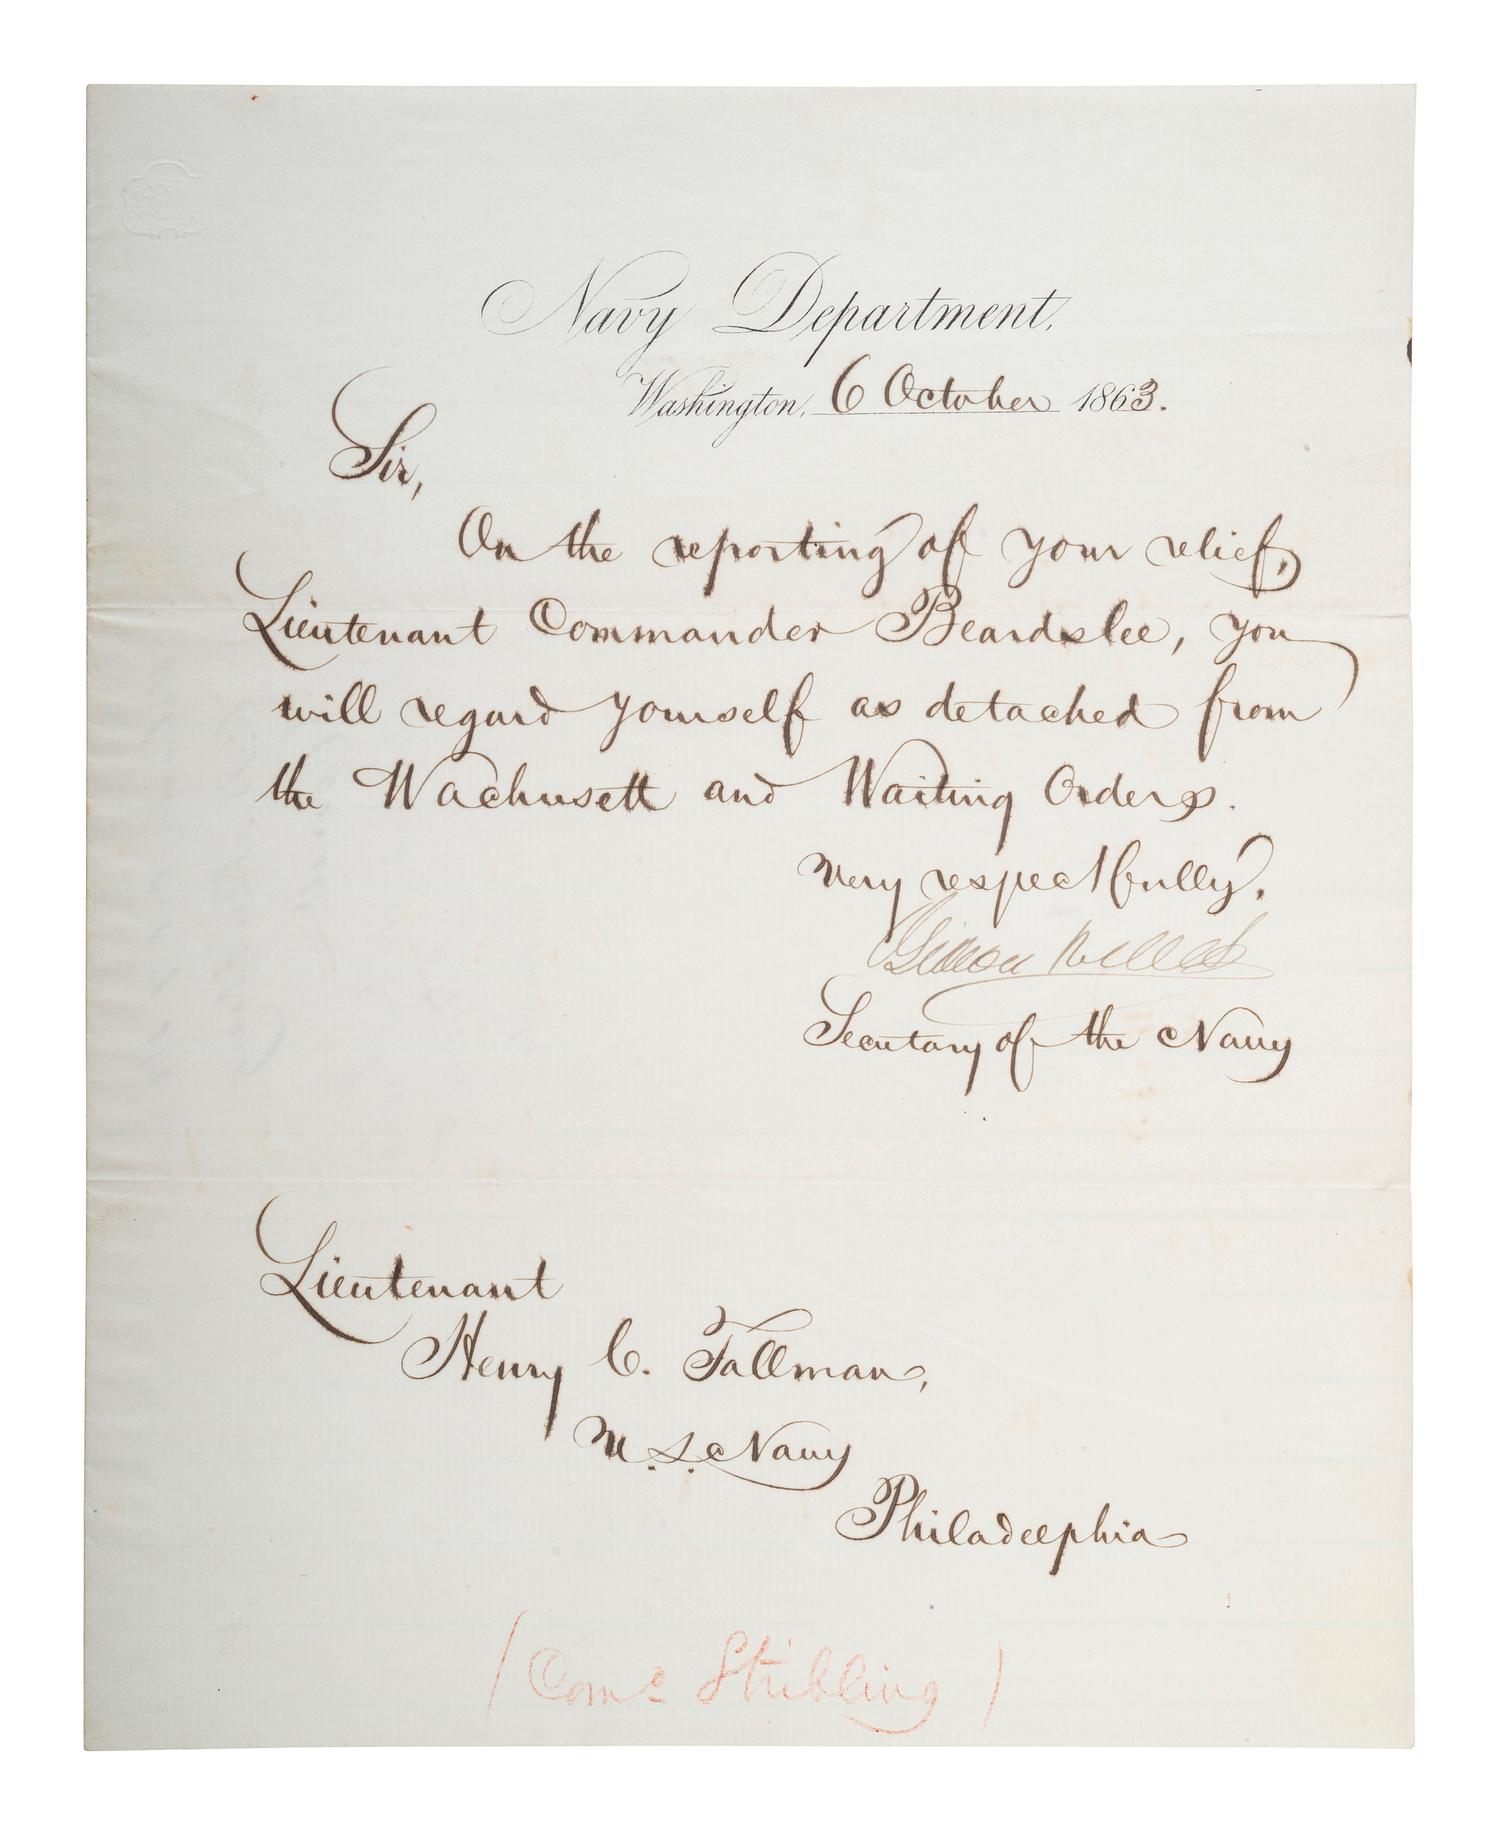 Navy Department.
Washington, 6 October 1863.
Sir,
On the reporting of your relief,
Lieutenant Commander Beardslee, you
will regard yourself as detached from
the Wachusett and Waiting Orders.
Very respectfully.
Gideon Welles
Secretary of the Navy
Lieutenant
Henry C. Tallman,
U.S. Navy
Philadelphia
(Comᵉ Stribling)